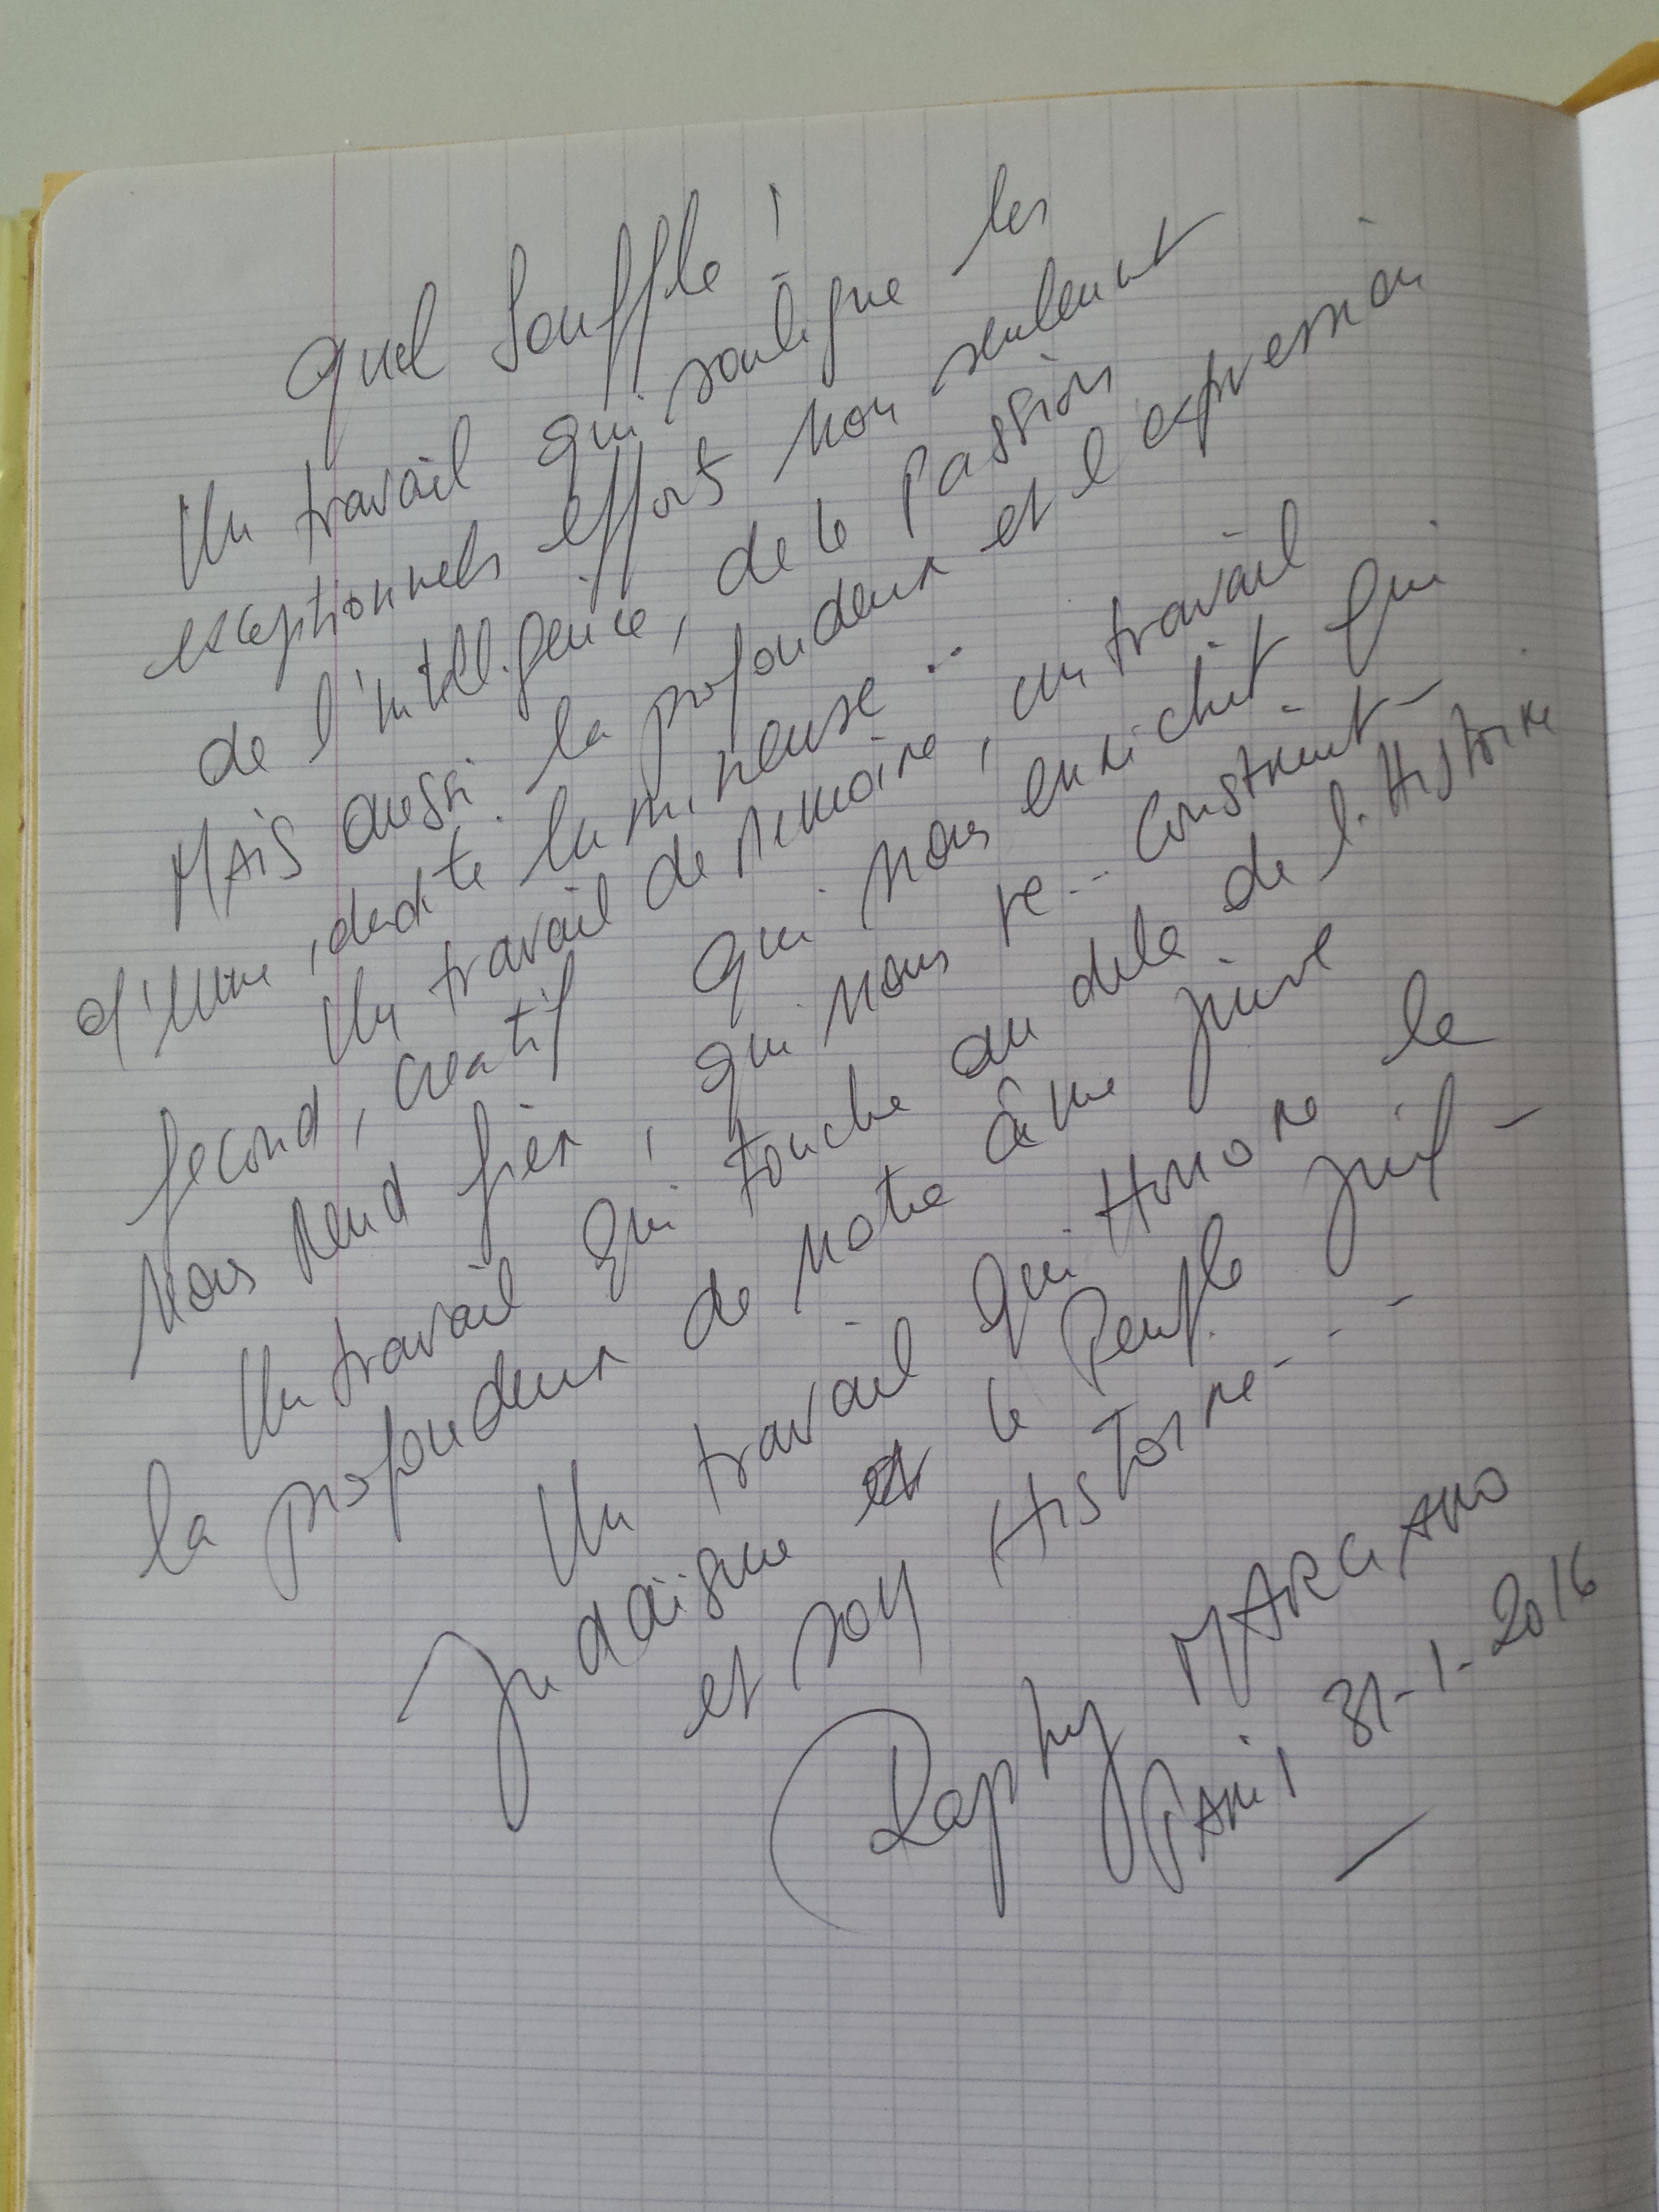 Quel Souffle !
Un travail qui souligne les
exceptionnels efforts non seulement
de l'intelligence, de la Passion
MAIS aussi la profondeur et l'expression
d'une identité lumineuse ..
Un travail de Memoire, un travail
fecond, creatif qui nous enrichit qui
nous rend fier, qui nous re-construit -
Un travail qui touche au dela de l'Histoire
la profondeur de notre âme juive
Un travail qui Honore le
Judaïsme et le Peuple juif -
et son Histoire - - -
Raphy MARCIANO
Paris 31-1-2016